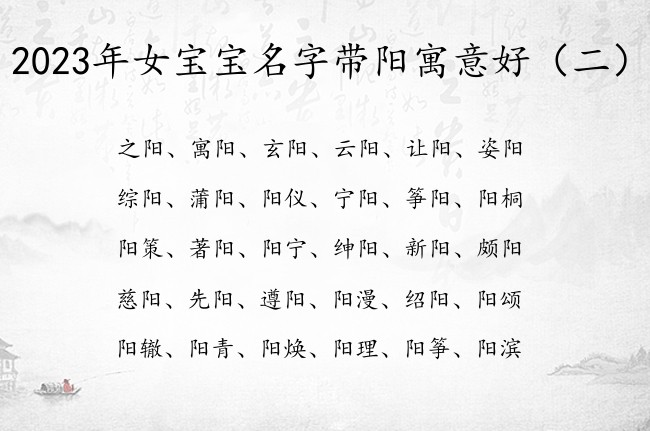 2023年女宝宝名字带阳寓意好（二）
之阳、寓阳、玄阳、云阳、让阳、姿阳
综阳、蒲阳、阳仪、宁阳、筝阳、阳桐
阳策、著阳、阳宁、绅阳、新阳、颇阳
慈阳、先阳、遵阳、阳漫、绍阳、阳颂
阳辙、阳青、阳焕、阳理、阳筝、阳滨